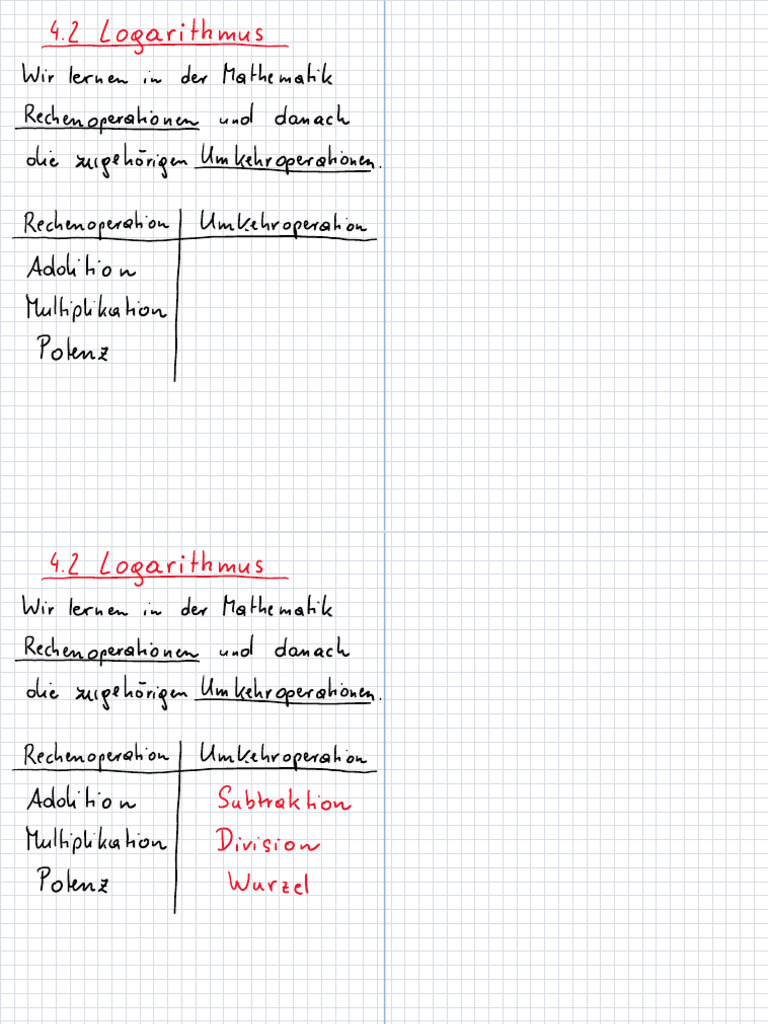 4.2 Logarithmus
Wir lernen in der Mathematik
Rechenoperationen und danach
die zugehörigen Umkehroperationen.
Rechenoperation Umkehroperation
Addition
Multiplikation
Potenz
4.2 Logarithmus
Wir lernen in der Mathematik
Rechenoperationen und danach
die zugehörigen Umkehroperationen.
Rechenoperation Umkehroperation
Addition Subtraktion
Multiplikation Division
Potenz Wurzel